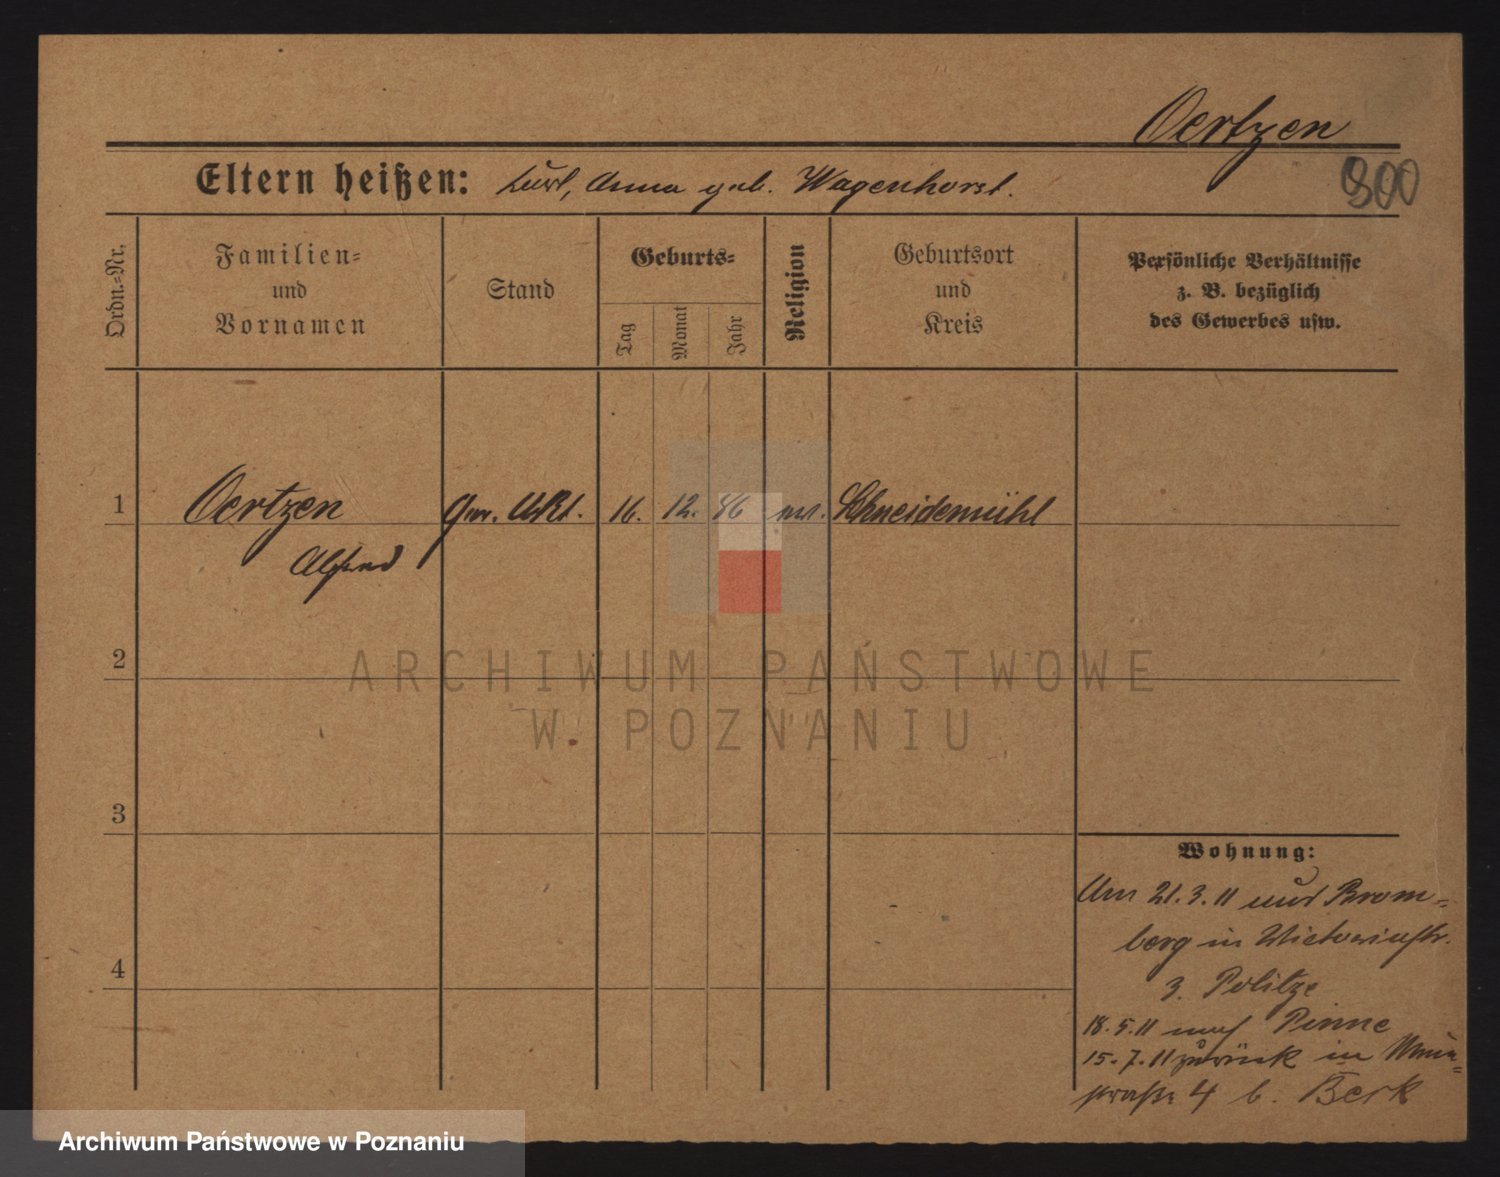 Oertzen
300
Eltern heißen: Kurt, Anna geb. Wagenhorst.
Ordn.-Nr.
Familien-
und
Vornamen
Stand
Geburts-
Tag
Monat
Jahr
Religion
Geburtsort
und
Kreis
Persönliche Verhältnisse
z. B. bezüglich
des Gewerbes usw.
1 Oertzen 16. 12. 86 Schneidemühl
Alfred
2
3
4
Wohnung:
Am 21.3.11 aus Brom-
berg in Victoriastr.
3. Politze
18.5.11 nach Pinne
15.7.11 zurück in
straße 4 b. Berk
ARCHIWUM PAŃSTWOWE
W POZNANIU
Archiwum Państwowe w Poznaniu